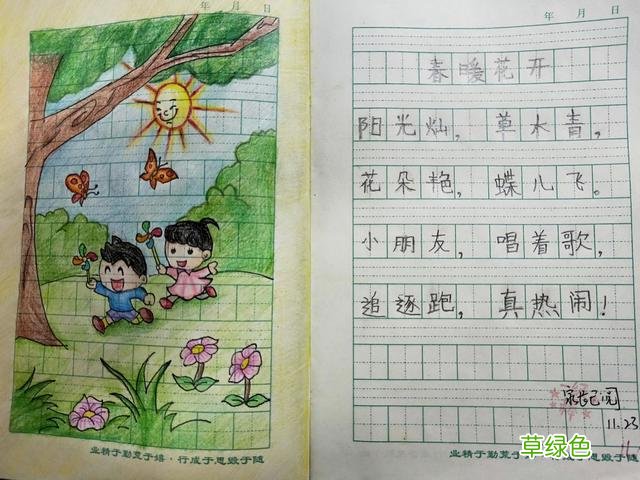 年 月 日
业精于勤荒于嬉·行成于思毁于随
年 月 日
春暖花开
阳光灿，草木青，
花朵艳，蝶儿飞。
小朋友，唱着歌，
追逐跑，真热闹！
家长已阅
11.23
业精于勤荒于
草绿色